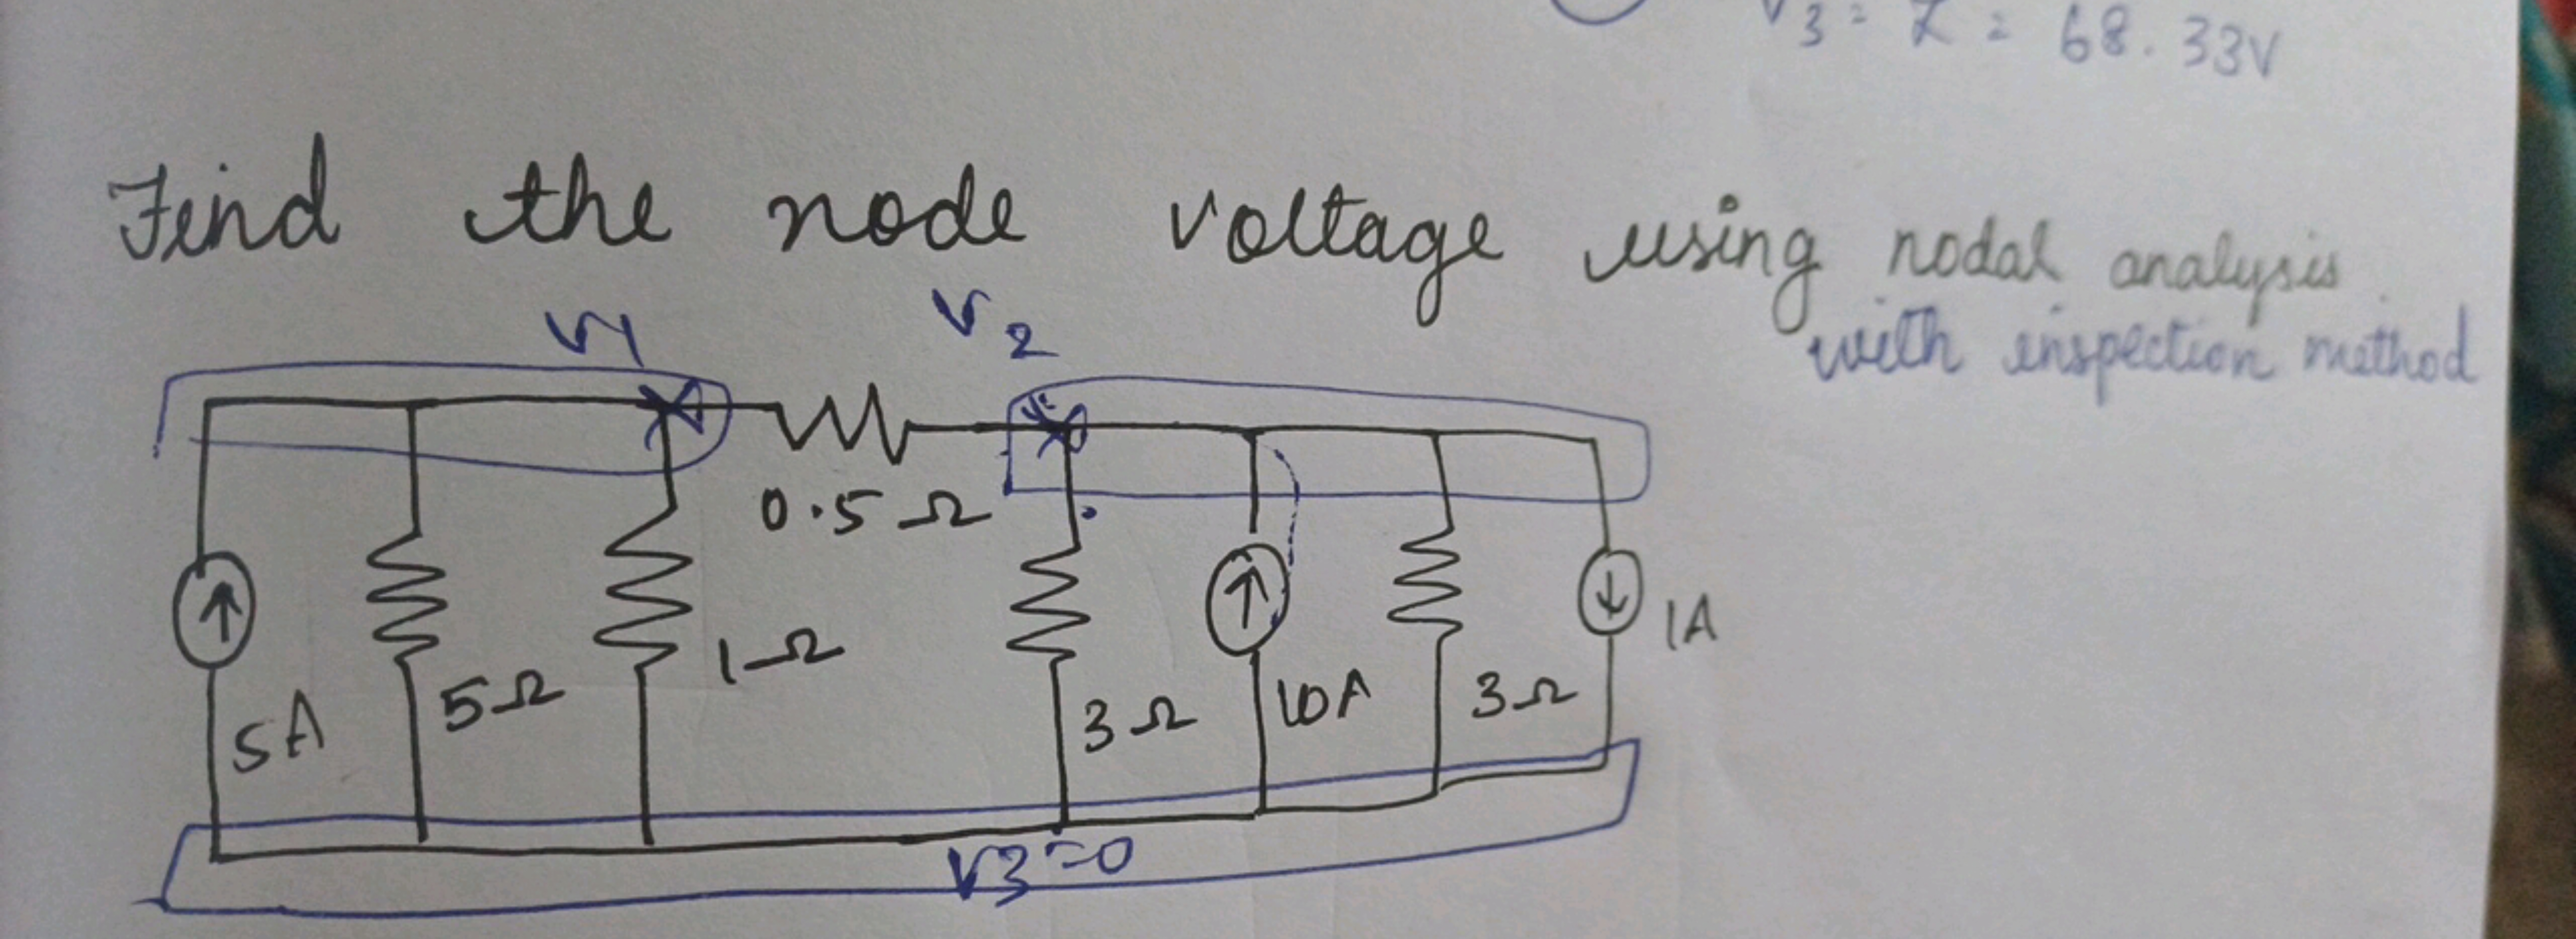 V3 = Z = 68.33V
Find the node voltage using nodal analysis
with inspection method
V1
V2
0.5 Ω
5A
5Ω
1Ω
3Ω
10A
3Ω
1A
V3=0